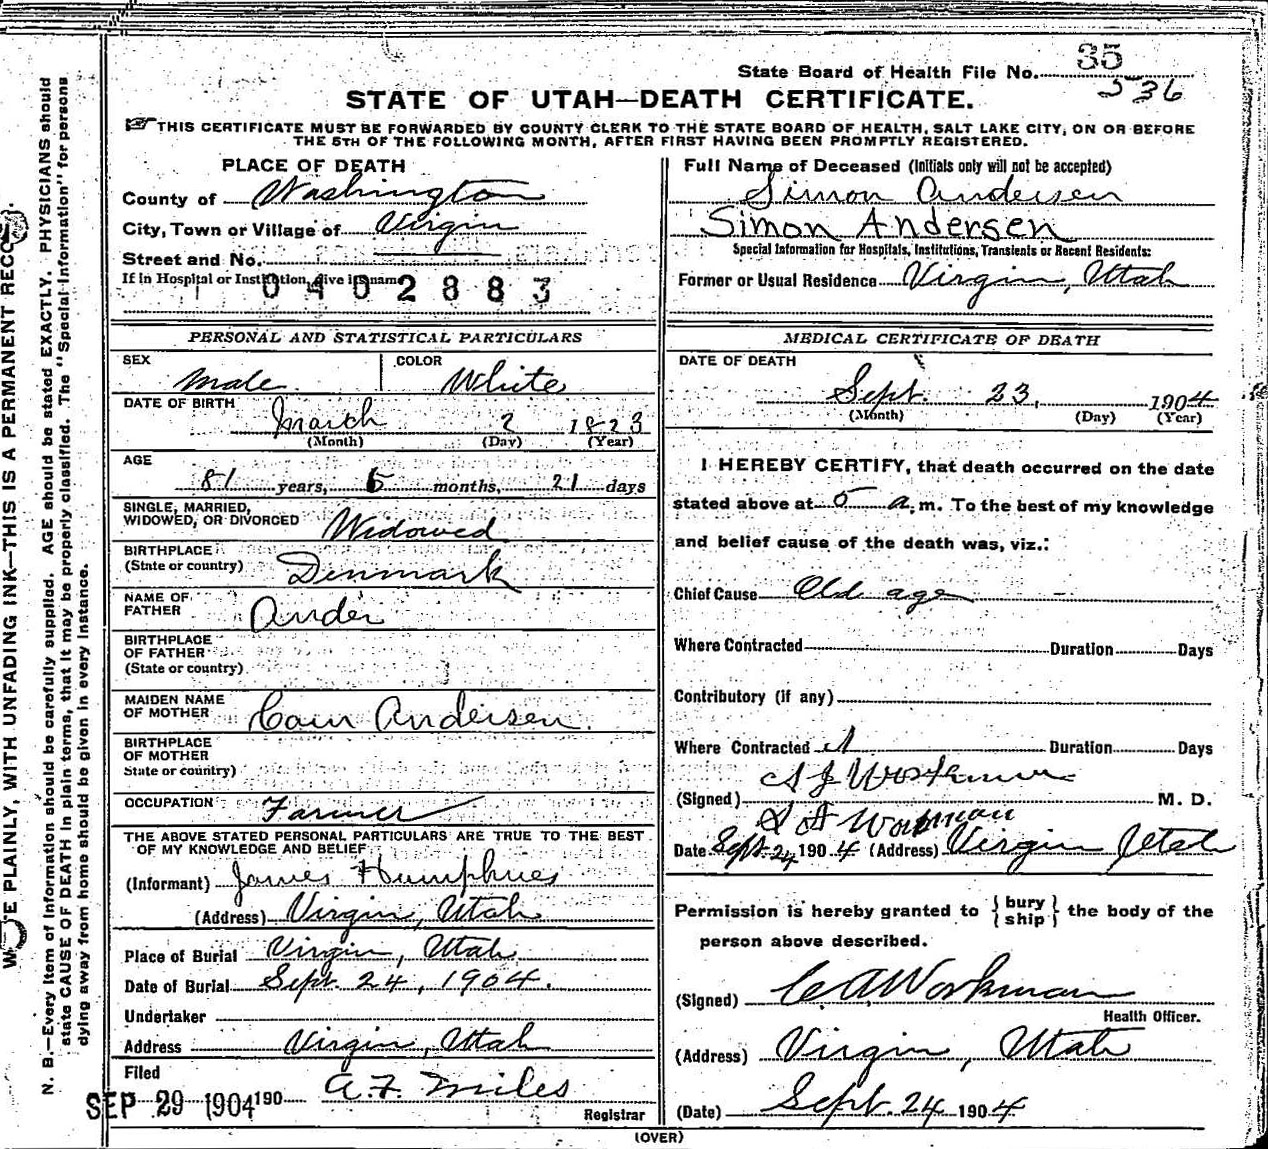 35
State Board of Health File No. 536
STATE OF UTAH—DEATH CERTIFICATE.
☞ THIS CERTIFICATE MUST BE FORWARDED BY COUNTY CLERK TO THE STATE BOARD OF HEALTH, SALT LAKE CITY, ON OR BEFORE
THE 5TH OF THE FOLLOWING MONTH, AFTER FIRST HAVING BEEN PROMPTLY REGISTERED.
PLACE OF DEATH
County of Washington
City, Town or Village of Virgin
Street and No.
If in Hospital or Institution, give its name
0402883
Full Name of Deceased (Initials only will not be accepted)
Simon Andersen
Simon Andersen
Special Information for Hospitals, Institutions, Transients or Recent Residents:
Former or Usual Residence Virgin, Utah
PERSONAL AND STATISTICAL PARTICULARS
SEX Male COLOR White
DATE OF BIRTH
March 2 1823
(Month) (Day) (Year)
AGE
81 years, 6 months, 21 days
SINGLE, MARRIED,
WIDOWED, OR DIVORCED Widowed
BIRTHPLACE
(State or country) Denmark
NAME OF
FATHER Ander
BIRTHPLACE
OF FATHER
(State or country)
MAIDEN NAME
OF MOTHER Andersen
BIRTHPLACE
OF MOTHER
State or country)
OCCUPATION Farmer
THE ABOVE STATED PERSONAL PARTICULARS ARE TRUE TO THE BEST
OF MY KNOWLEDGE AND BELIEF
(Informant) James Humphries
(Address) Virgin, Utah
Place of Burial Virgin, Utah
Date of Burial Sept. 24, 1904.
Undertaker
Address Virgin, Utah
Filed
SEP 29 1904 190 A. F. Miles
Registrar
MEDICAL CERTIFICATE OF DEATH
DATE OF DEATH
Sept. 23, 1904
(Month) (Day) (Year)
I HEREBY CERTIFY, that death occurred on the date
stated above at 5 a.m. To the best of my knowledge
and belief cause of the death was, viz.:
Chief Cause Old age
Where Contracted Duration Days
Contributory (if any)
Where Contracted Duration Days
(Signed) Workman M. D.
Workman
Date Sept. 24 1904 (Address) Virgin Utah
Permission is hereby granted to { bury
ship } the body of the
person above described.
(Signed) C A Workman
Health Officer.
(Address) Virgin, Utah
(Date) Sept. 24 1904
(OVER)
E PLAINLY, WITH UNFADING INK—THIS IS A PERMANENT RECO
N. B.—Every item of information should be carefully supplied. AGE should be stated EXACTLY. PHYSICIANS should
state CAUSE OF DEATH in plain terms, that it may be properly classified. The "Special Information" for persons
dying away from home should be given in every instance.